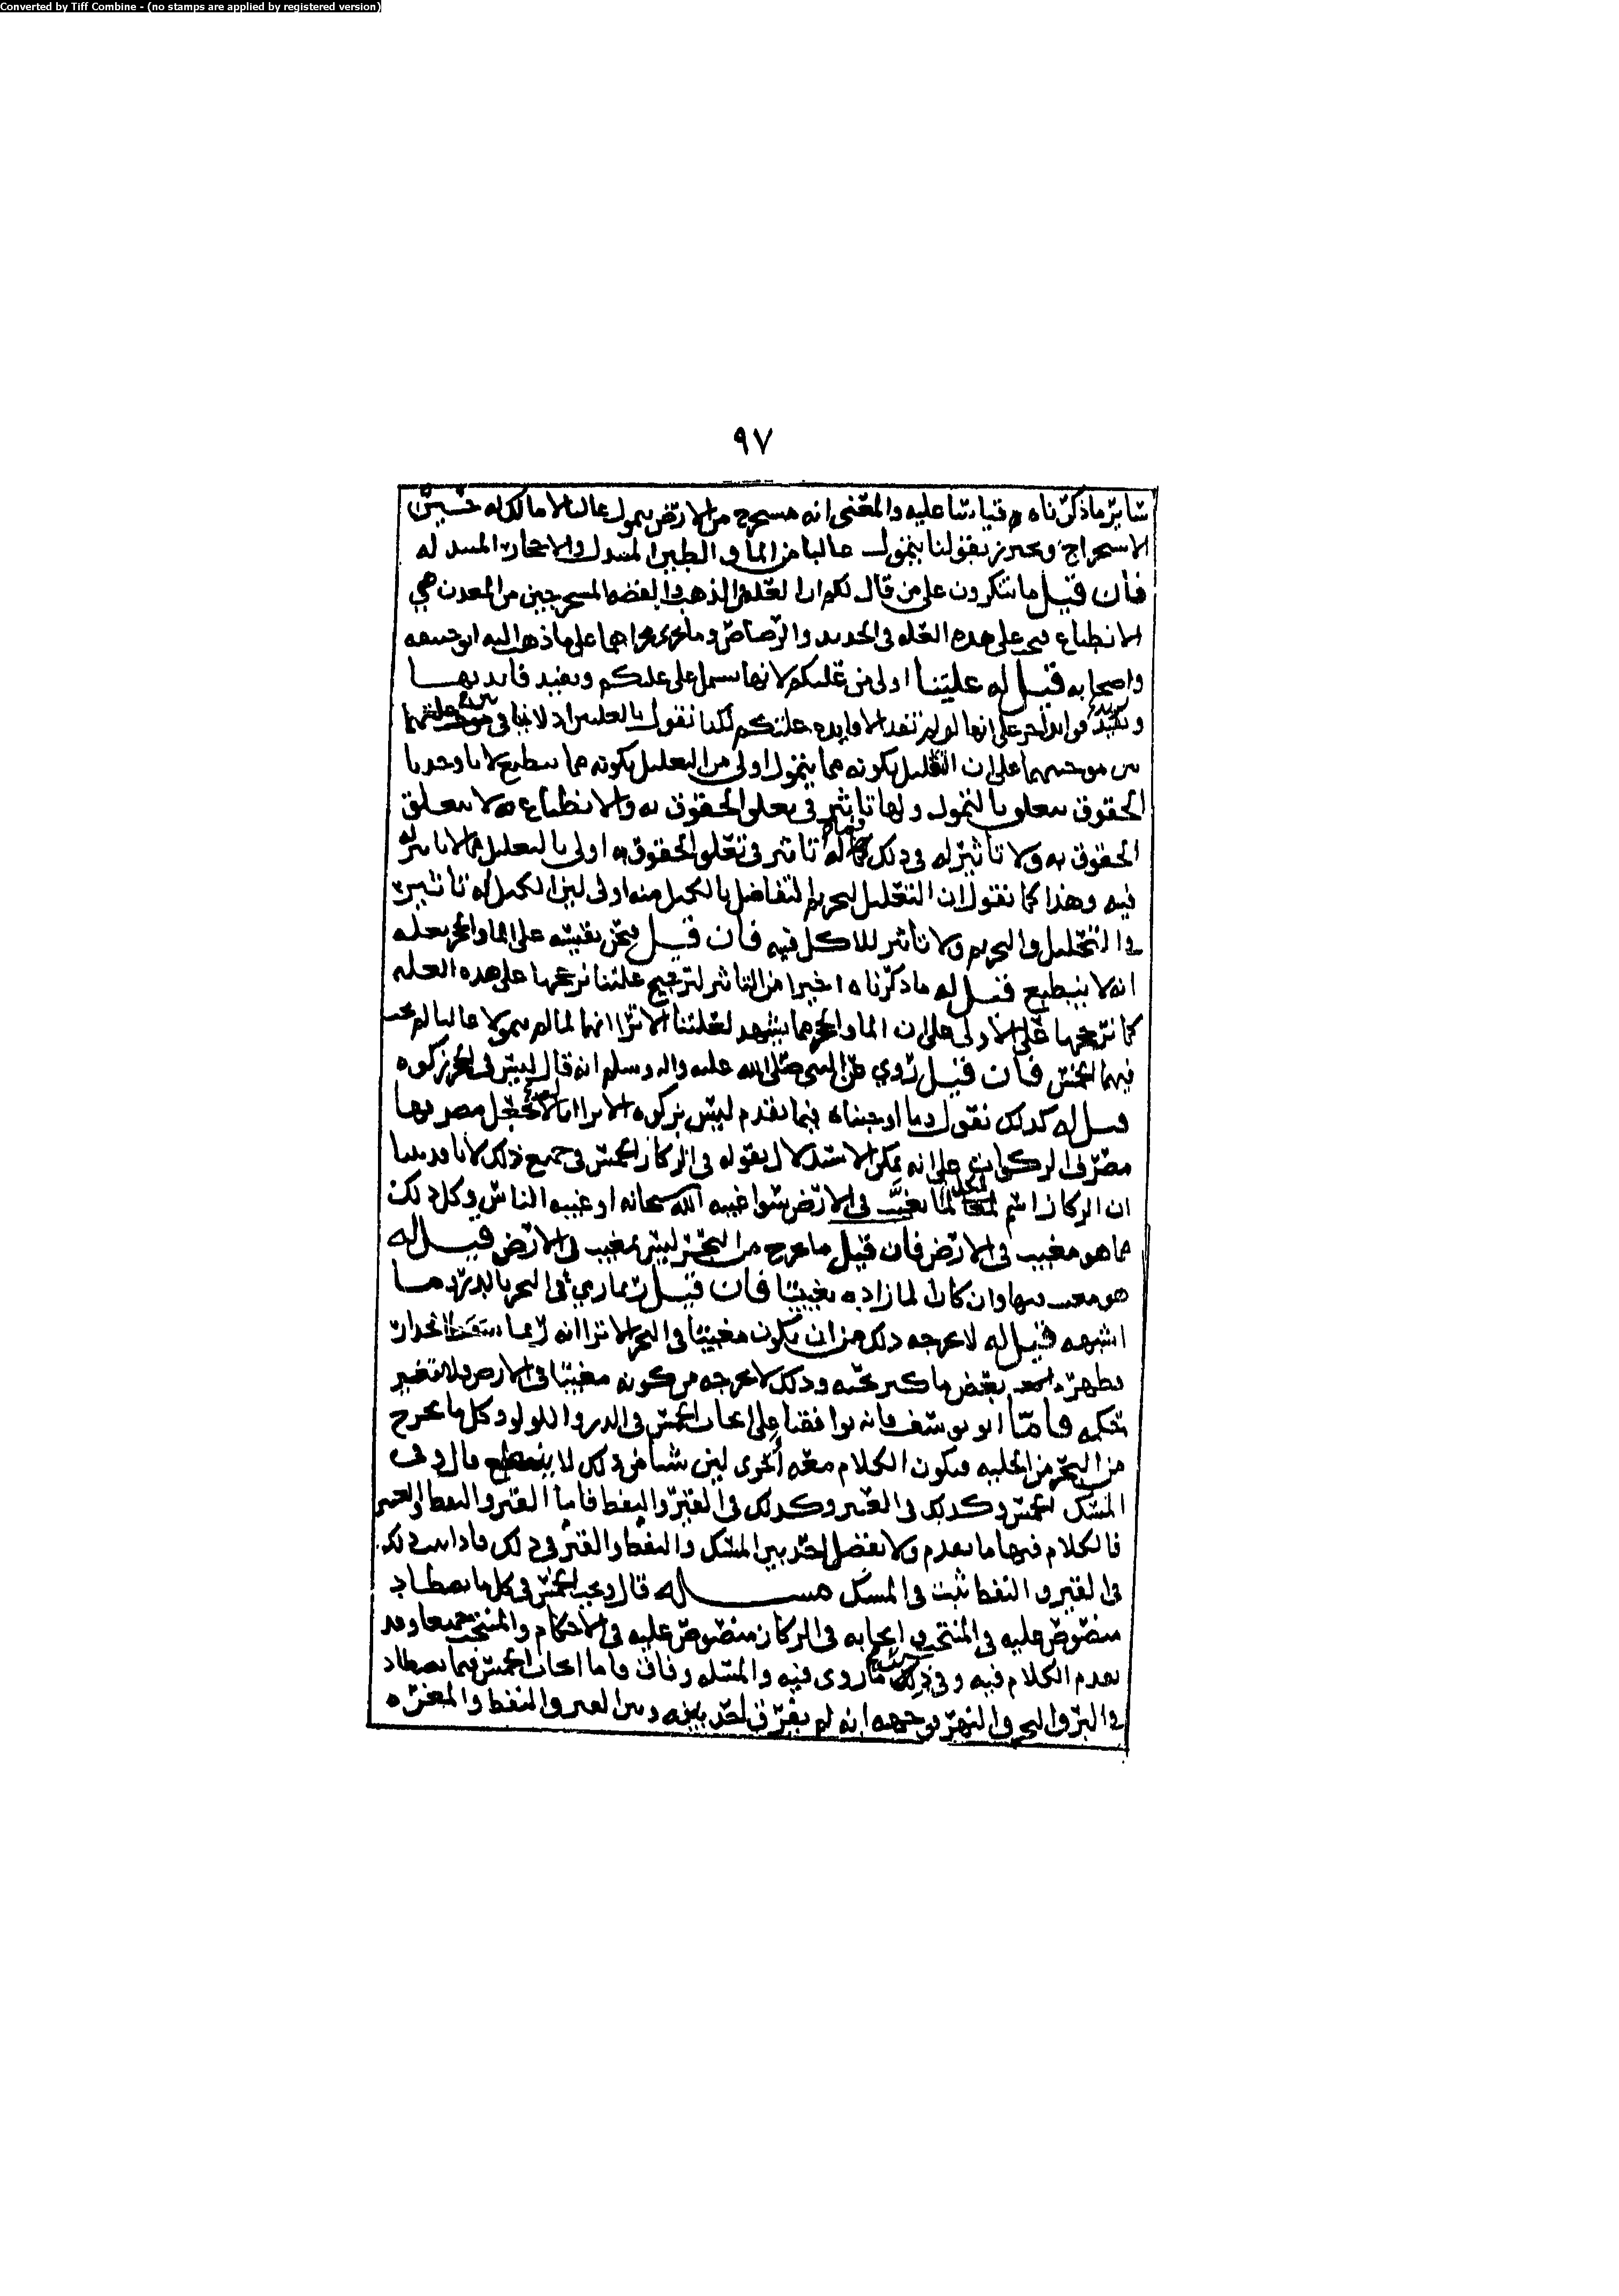 Converted by Tiff Combine - (no stamps are applied by registered version)
٩٧
سائر ما ذكرناه قياسا عليه والمعنى انه مستخرج من الارض يتمول غالبا لا مالك له حين
الاستخراج ونحترز بقولنا يتمول غالبا من الماء والطين المبتذل والاحجار المبتذله
فان قيل ما تنكرون على من قال لكم ان العله في الذهب والفضه المستخرجين من المعدن هي
الانطباع فيجب على هذه العله في الحديد والرصاص وما جرى مجراهما على ما ذهب اليه ابو حنيفه
واصحابه قيل له علتنا اولى من علتكم لانها تشتمل على علتكم وتفيد فايدتها
وتفيد فوايد اخر على انها لو لم تفد الا فايده علتكم لكنا نقول بالعلتين اذ لا تنافي
بين موجبيهما على ان التعليل بكونه مما يتمول اولى من التعليل بكونه مما ينطبع لانا وجدنا
الحقوق تتعلق بالتمول ولها تاثير في تعلق الحقوق به والانطباع لا تتعلق
الحقوق به ولا تاثير له في ذلك وما له تاثير في تعلق الحقوق به اولى بالتعليل مما لا تاثير له
فيه وهذا كما نقول ان التعليل لتحريم التفاضل بالكيل منه اولى لان الكيل له تاثير
في التحليل والتحريم ولا تاثير للاكل فيه فان قيل فنحن نقيسه على الماء والحجر بعله
انه لا ينطبع قيل له ما ذكرناه اخيرا من التاثير لترجيح علتنا نرجحها على هذه العله
كما نرجحها على الاولى على ان الماء والحجر مما يشهد لعلتنا الا ترا انهما لما لم يتمولا غالبا لم يجب
فيهما الخمس فان قيل روي عن النبي صلى الله عليه واله وسلم انه قال ليس في الحجر زكوه
قيل له كذلك نقول وما اوجبناه فيما تقدم ليس بزكوه الا ترا انا لا نجعل مصرفها
مصرف الزكوات على انه يمكن الاستدلال بقوله في الركاز الخمس في جميع ذلك لانا قد بينا
ان الركاز اسم لما يغيب في الارض سوا غيبه الله سبحانه او غيبه الناس وكل ذلك
مما هو مغيب في الارض فان قيل ما يخرج من البحر ليس بمغيب في الارض قيل له
هو مغيب فيها وان كان الماء زاده تغييبا فان قيل ربما رمي في البحر بالدر وما
اشبهه قيل له لا يخرجه ذلك من ان يكون مغيبا في البحر الا ترا انه ربما
بعض ما كبر تحته وذلك لا يخرجه من كونه مغيبا في الارض ولا تغير
حكمه فاما ابو يوسف فانه يوافقنا على ايجاب الخمس في الدر واللولو وكل ما يخرج
من البحر من الحليه فيكون الكلام معه اجرى لان شيا من ذلك لا ينطبع قال وفي
المسك الخمس وكذلك في العنبر وكذلك في القير والنفط فاما القير والنفط والعنبر
فالكلام فيها ما تقدم ولا يفصل احد بين المسك والنفط والقير في ذلك فاذا ثبت ذلك
في القير والنفط ثبت في المسك مسـاله قال ويجب الخمس في كل ما يصطاد
منصوص عليه في المنتخب وايجابه في الركاز منصوص عليه في الاحكام والمنتخب جميعا وقد
تقدم الكلام فيه وفي ما روى فيه والمسله وفاق فاما ايجاب الخمس فيما يصطاد
في البر والبحر والنهر فوجهه انه لم يفرق احد بينه وبين العنبر والنفط والمغره